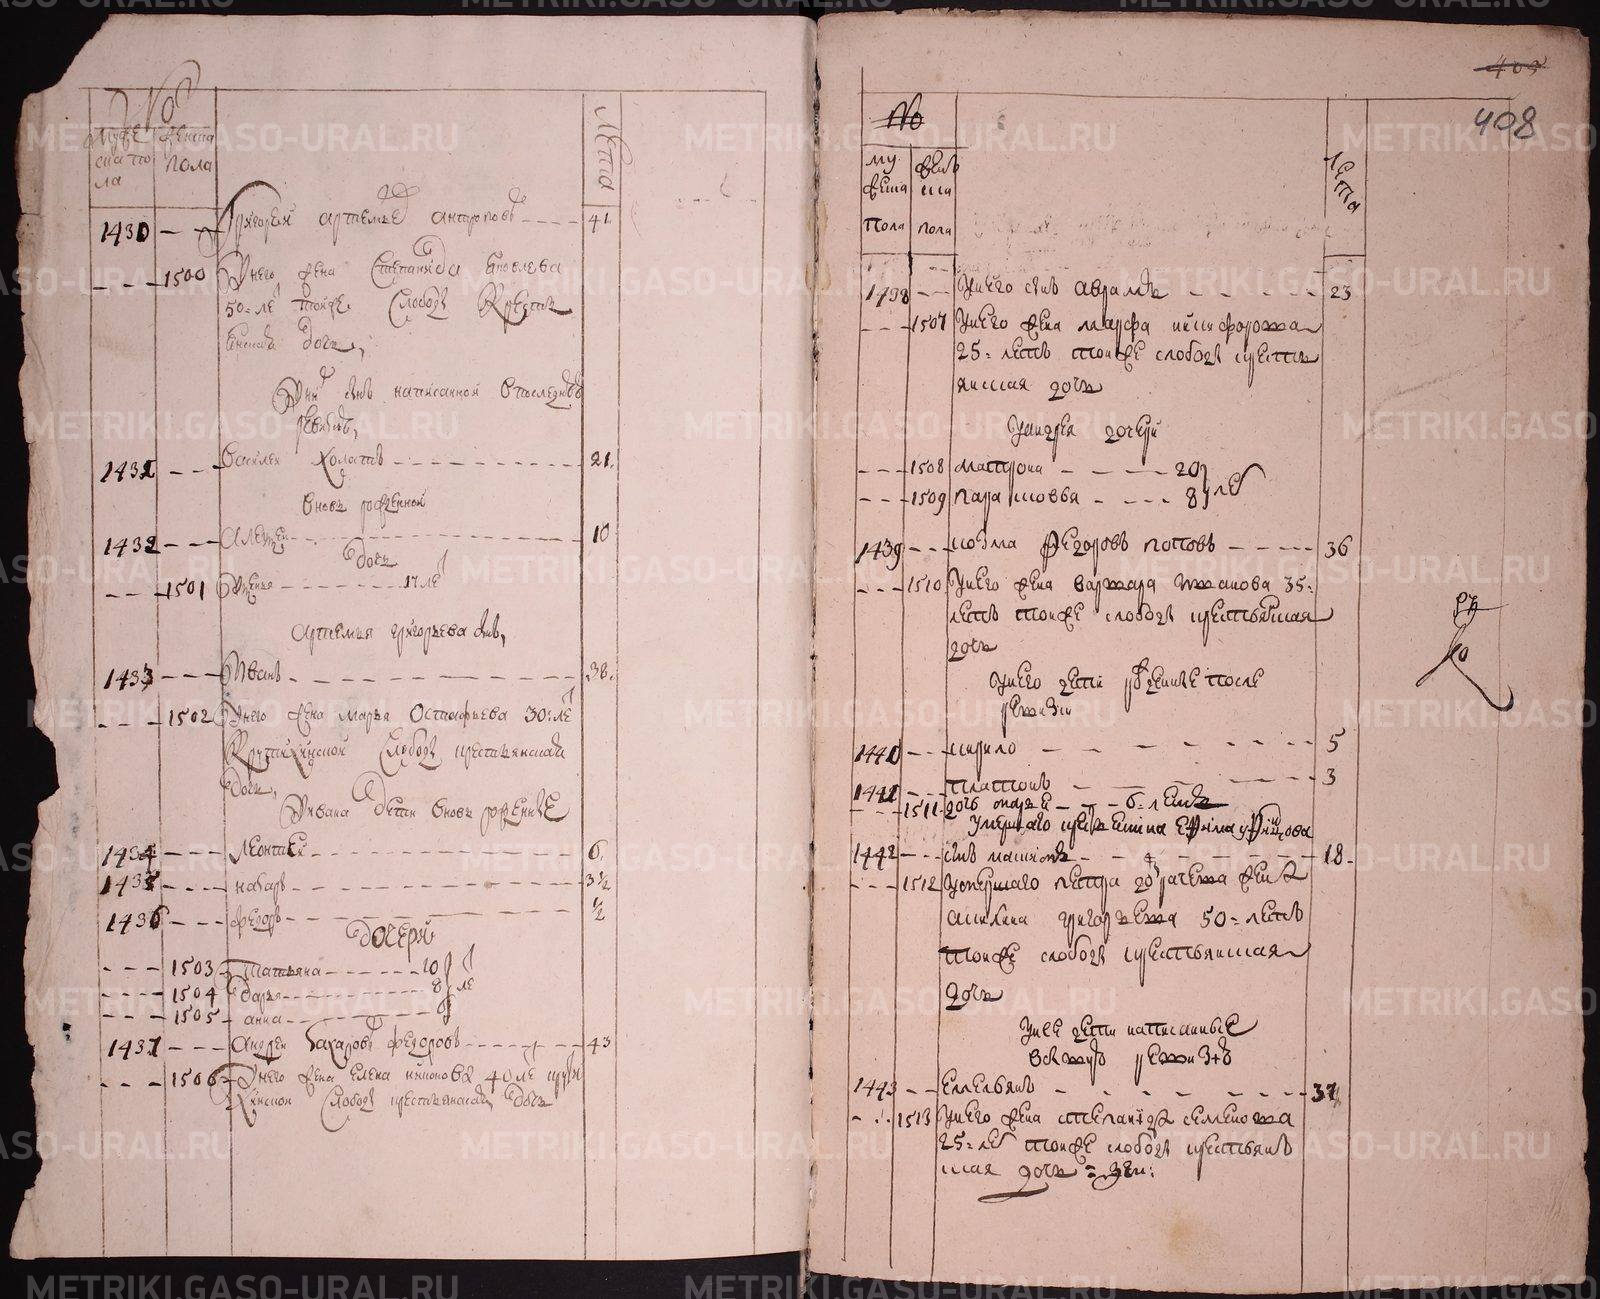 No
мужеска пола
женска пола
Лета
1430 Григорей Артемьев Антропов 41
1500 У него жена Степанида Яковлева
50 = ле той же Слободы Крестья
янская дочь,
У них сын написанной в последнюю
ревизию,
1431 Василей Холост 21
Вновь рожденной
1432 Алексей 10
Дочь
1501 17 ле
Артемия Григорьева сын,
1433 Иван 38
1502 У него жена Марья Остафьева 30: ле
Крутихинской Слободы крестьянская
дочь,
У Ивана Дети вновь рожденные
1434 Леонтей 6
1435 Назар 3 1/2
1436 Федор 1/2
Дочери
1503 Татьяна 10
1504 Дарья 8 ле
1505 Анна 6
1437 Андреи Захаров Федоров 43
1506 У него жена Елена 40 ле крути
хинской Слободы крестьянская Дочь
405
408
No
му
жеска
пола
женс
ка
пола
лета
1438 У него сын Аврам 23
1507 У него жена Марфа никифорова
25 = лет той же слободы кресть
янская дочь
У андрея дочери
1508 Матрона 20
1509 Парасковья 8 ле
1439 козма Федоров попов 36
1510 У него жена варвара иванова 35 =
лет той же слободы крестьянская
дочь
У него дети рожденные после
ревизии
1440 кирило 5
1441 платон 3
1511 дочь 6 = лет
Умершаго крестьянина
1442 сын 18
1512 Умершаго петра жена
Акилина григорьева 50 = лет
той же слободы крестьянская
дочь
У нее дети написанные
в ревизию
1443 Емельян 37
1513 У него жена степанида семенова
25 = ле той же слободы крестьян
ская дочь
METRIKI.GASO-URAL.RU